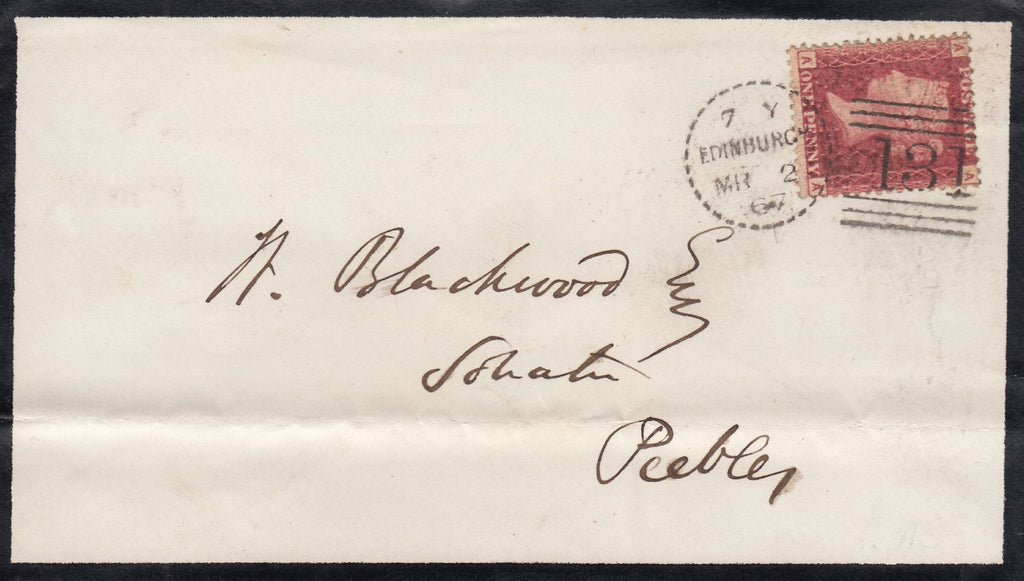 A
POSTAGE
ONE PENNY
A
A
7 Y
EDINBURGH
131
MR 2
67
W. Blackwood Esq
Peebles